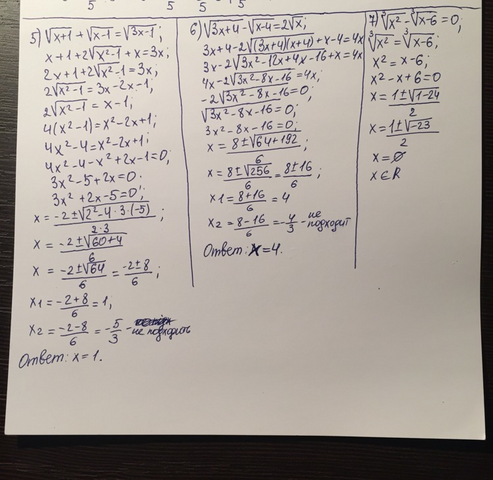 5) √x+1 + √x-1 = √3x-1;
x+1+2√x²-1 + x = 3x;
2x+1+2√x²-1 = 3x;
2√x²-1 = 3x-2x-1;
2√x²-1 = x-1;
4(x²-1) = x²-2x+1;
4x²-4 = x²-2x+1;
4x²-4-x²+2x-1=0;
3x²-5+2x=0;
3x²+2x-5=0;
x = -2±√2²-4·3·(-5) / 2·3 ;
x = -2±√60+4 / 6
x = -2±√64 / 6 = -2±8 / 6 ;
x1 = -2+8 / 6 = 1;
x2 = -2-8 / 6 = -5/3 - не подходить
Ответ: x=1.
6) √3x+4 - √x-4 = 2√x;
3x+4-2√(3x+4)(x+4) + x-4 = 4x
3x-2√3x²-12x+4x-16 + x = 4x
4x-2√3x²-8x-16 = 4x;
-2√3x²-8x-16 = 0;
√3x²-8x-16 = 0;
3x²-8x-16=0;
x = 8±√64+192 / 6 ;
x = 8±√256 / 6 = 8±16 / 6 ;
x1 = 8+16 / 6 = 4
x2 = 8-16 / 6 = -4/3 - не подходит
Ответ: x=4.
7) ³√x² - ³√x-6 = 0;
³√x² = ³√x-6;
x² = x-6;
x²-x+6=0
x = 1±√1-24 / 2
x = 1±√-23 / 2
x = ∅
x ∈ R